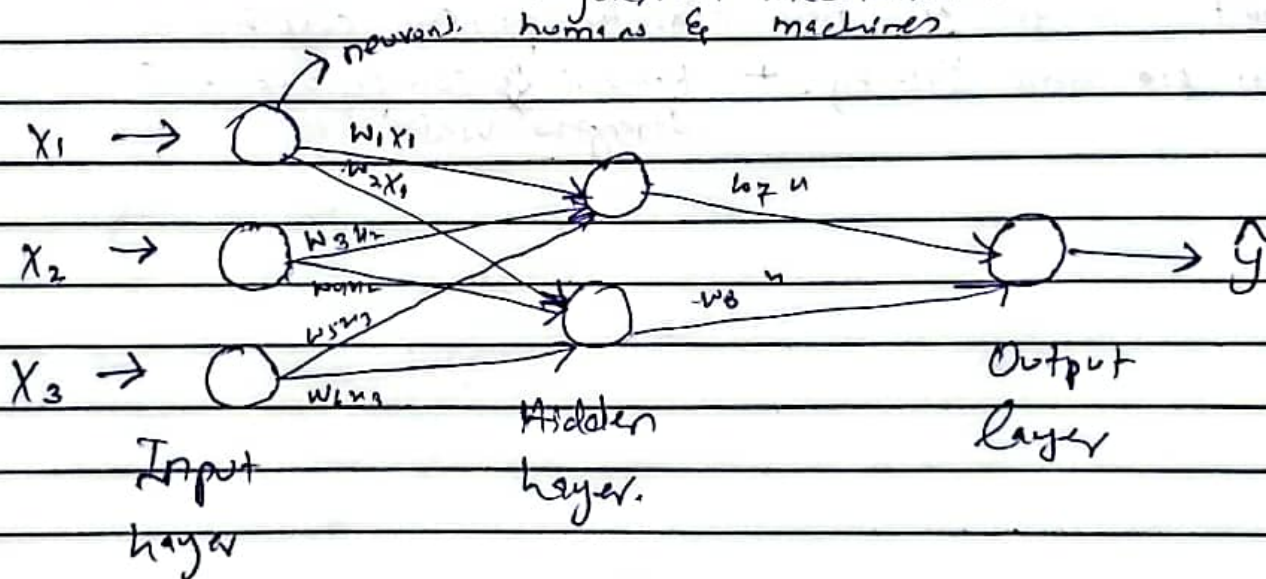 neurons. humans & machines.
X1 → W1X1
W2X1
W7 x
X2 → W3x2
W4x2
ŷ
W5x3
W8 x
X3 →
W6x3
Input Layer
Hidden Layer.
Output Layer